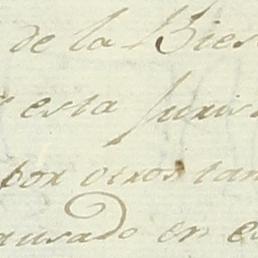 de la Bies
esta Juris
por otros tan
ausado en e